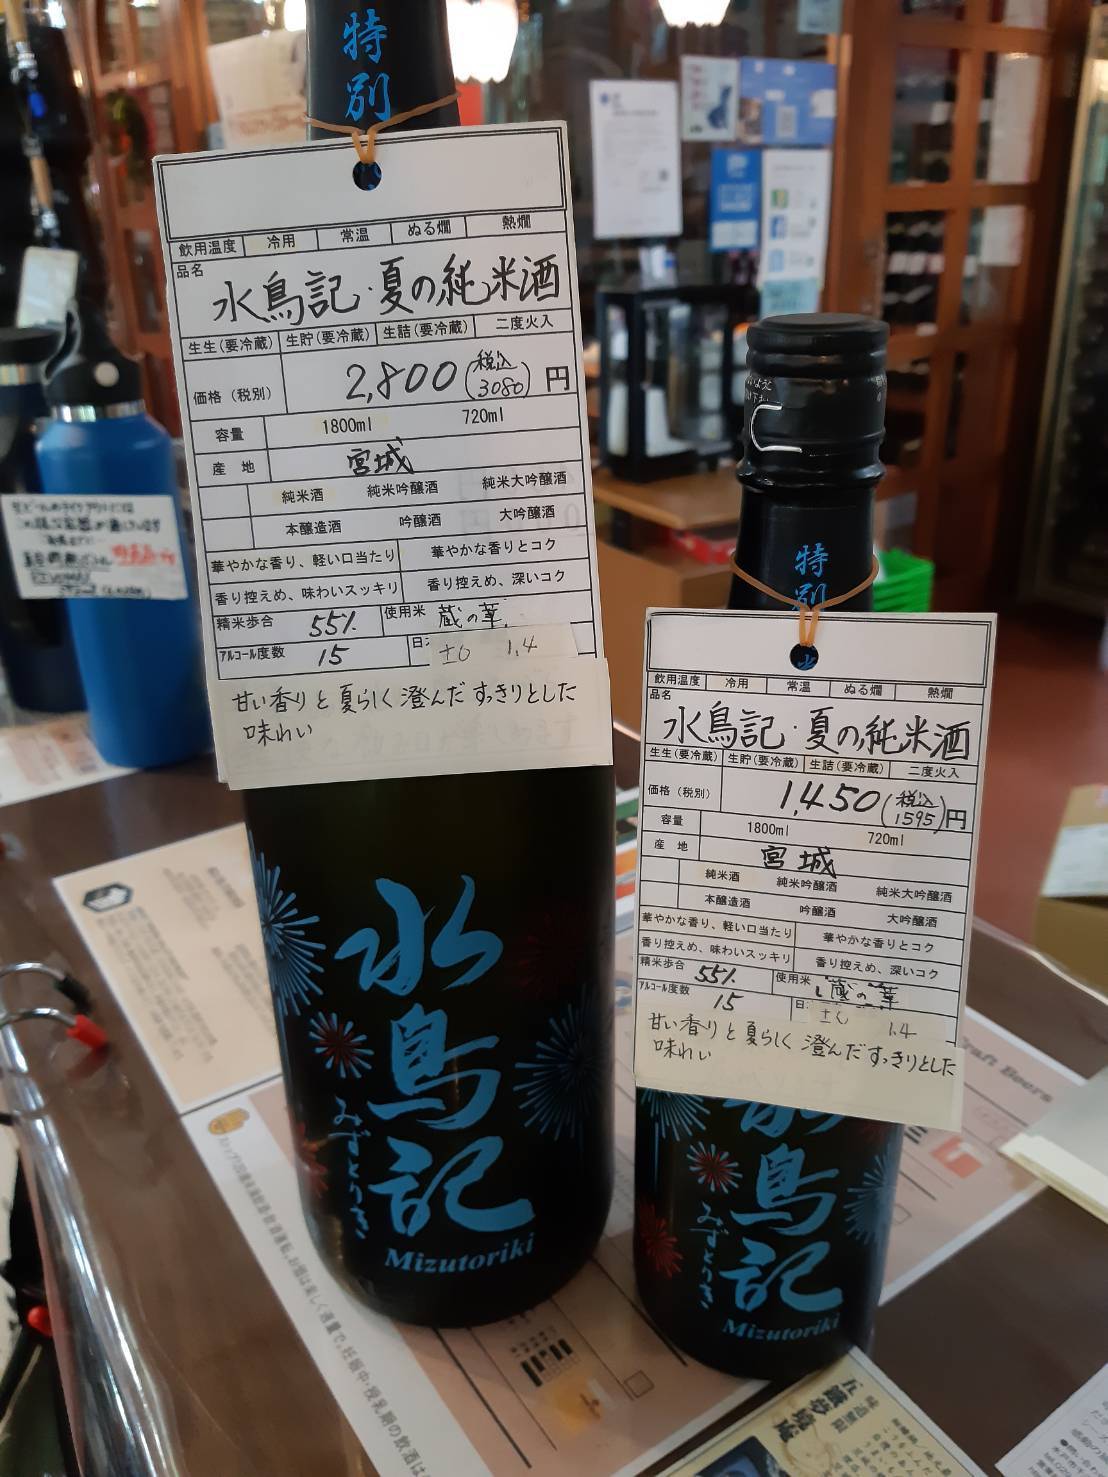 特別
飲用温度 冷用 常温 ぬる燗 熱燗
品名
水鳥記・夏の純米酒
生生(要冷蔵) 生貯(要冷蔵) 生詰(要冷蔵) 二度火入
価格(税別) 2,800(税込3080)円
容量 1800ml 720ml
産地 宮城
純米酒 純米吟醸酒 純米大吟醸酒
本醸造酒 吟醸酒 大吟醸酒
華やかな香り、軽い口当たり 華やかな香りとコク
香り控えめ、味わいスッキリ 香り控えめ、深いコク
精米歩合 55% 使用米 蔵の華
アルコール度数 15 日 ±0 1.4
甘い香りと夏らしく澄んだすっきりとした
味わい
水鳥記
みずとりき
Mizutoriki
特別
飲用温度 冷用 常温 ぬる燗 熱燗
品名
水鳥記・夏の純米酒
生生(要冷蔵) 生貯(要冷蔵) 生詰(要冷蔵) 二度火入
価格(税別) 1,450(税込1595)円
容量 1800ml 720ml
産地 宮城
純米酒 純米吟醸酒 純米大吟醸酒
本醸造酒 吟醸酒 大吟醸酒
華やかな香り、軽い口当たり 華やかな香りとコク
香り控えめ、味わいスッキリ 香り控えめ、深いコク
精米歩合 55% 使用米 蔵の華
アルコール度数 15 日 ±0 1.4
甘い香りと夏らしく澄んだすっきりとした
味わい
水鳥記
みずとりき
Mizutoriki
Craft Beers